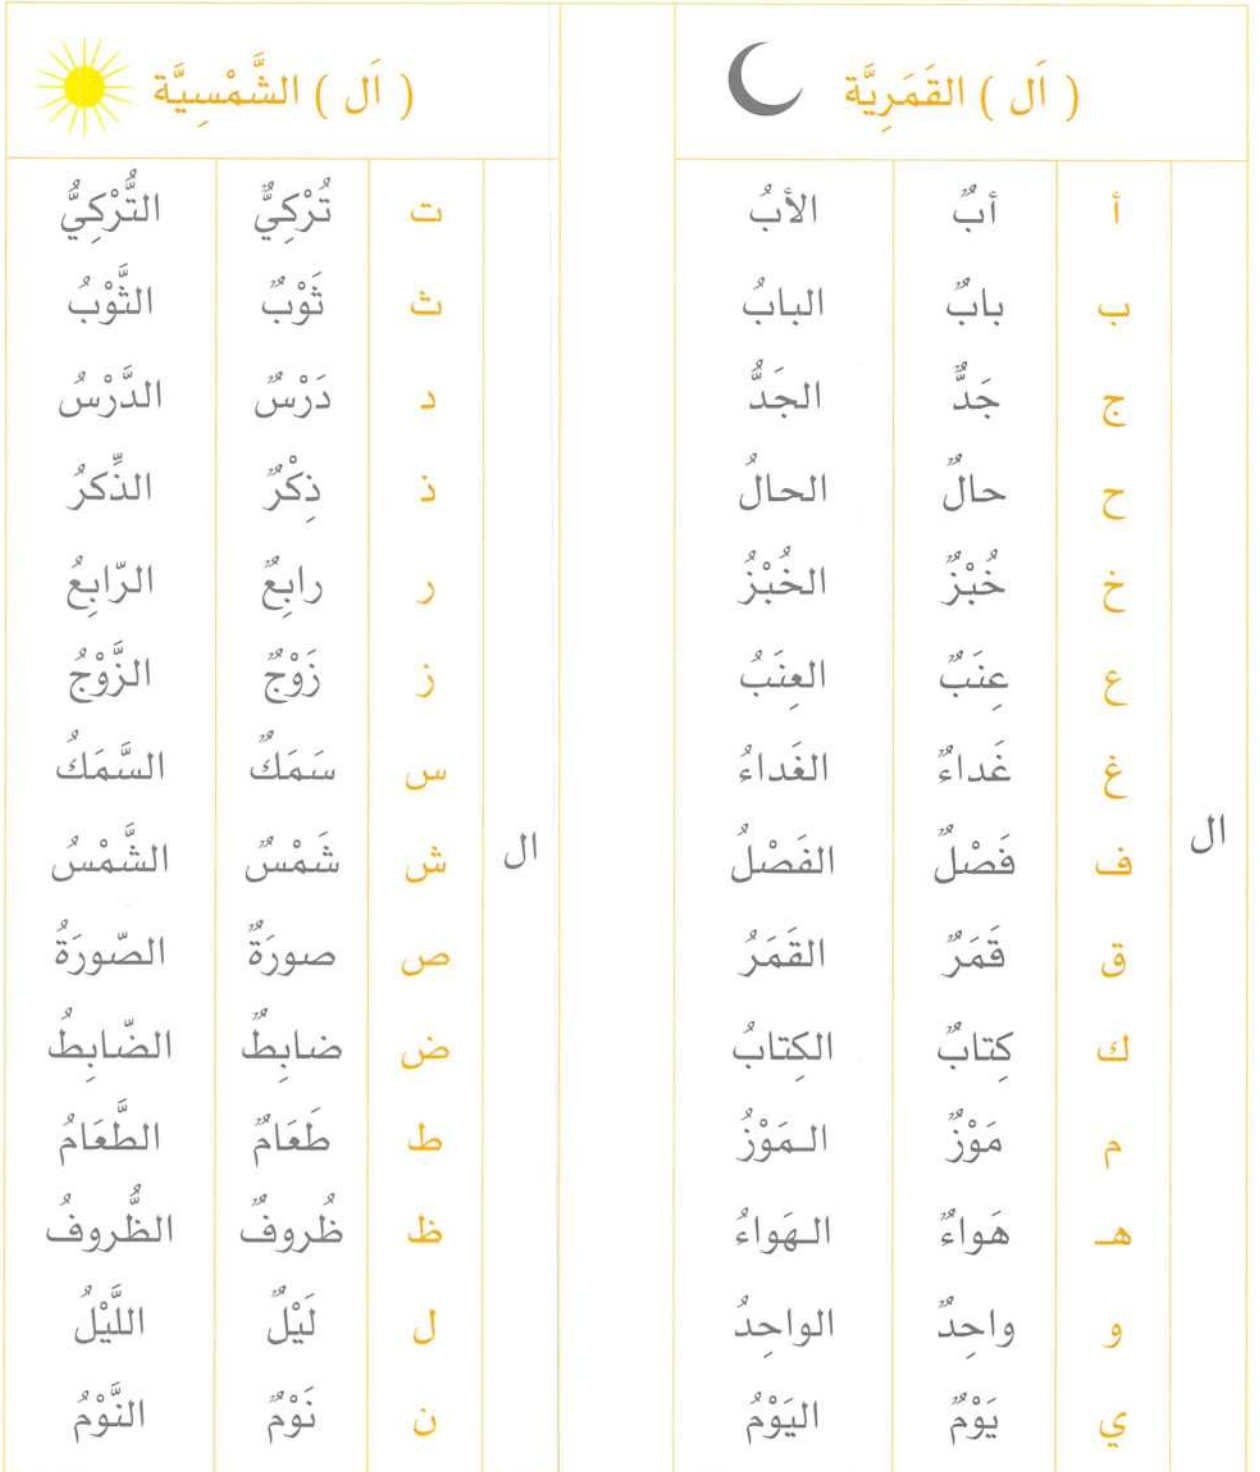 ( اَل ) القَمَرِيَّة
أ أبٌ الأبُ
ب بابٌ البابُ
ج جَدٌّ الجَدُّ
ح حالٌ الحالُ
خ خُبْزٌ الخُبْزُ
ع عِنَبٌ العِنَبُ
غ غَداءٌ الغَداءُ
ال
ف فَصْلٌ الفَصْلُ
ق قَمَرٌ القَمَرُ
ك كِتابٌ الكِتابُ
م مَوْزٌ الـمَوْزُ
هـ هَواءٌ الـهَواءُ
و واحِدٌ الواحِدُ
ي يَوْمٌ اليَوْمُ
( اَل ) الشَّمْسِيَّة
ت تُرْكِيٌّ التُّرْكِيُّ
ث ثَوْبٌ الثَّوْبُ
د دَرْسٌ الدَّرْسُ
ذ ذِكْرٌ الذِّكرُ
ر رابِعٌ الرّابِعُ
ز زَوْجٌ الزَّوْجُ
س سَمَكٌ السَّمَكُ
ال
ش شَمْسٌ الشَّمْسُ
ص صورَةٌ الصّورَةُ
ض ضابِطٌ الضّابِطُ
ط طَعَامٌ الطَّعَامُ
ظ ظُروفٌ الظُّروفُ
ل لَيْلٌ اللَّيْلُ
ن نَوْمٌ النَّوْمُ